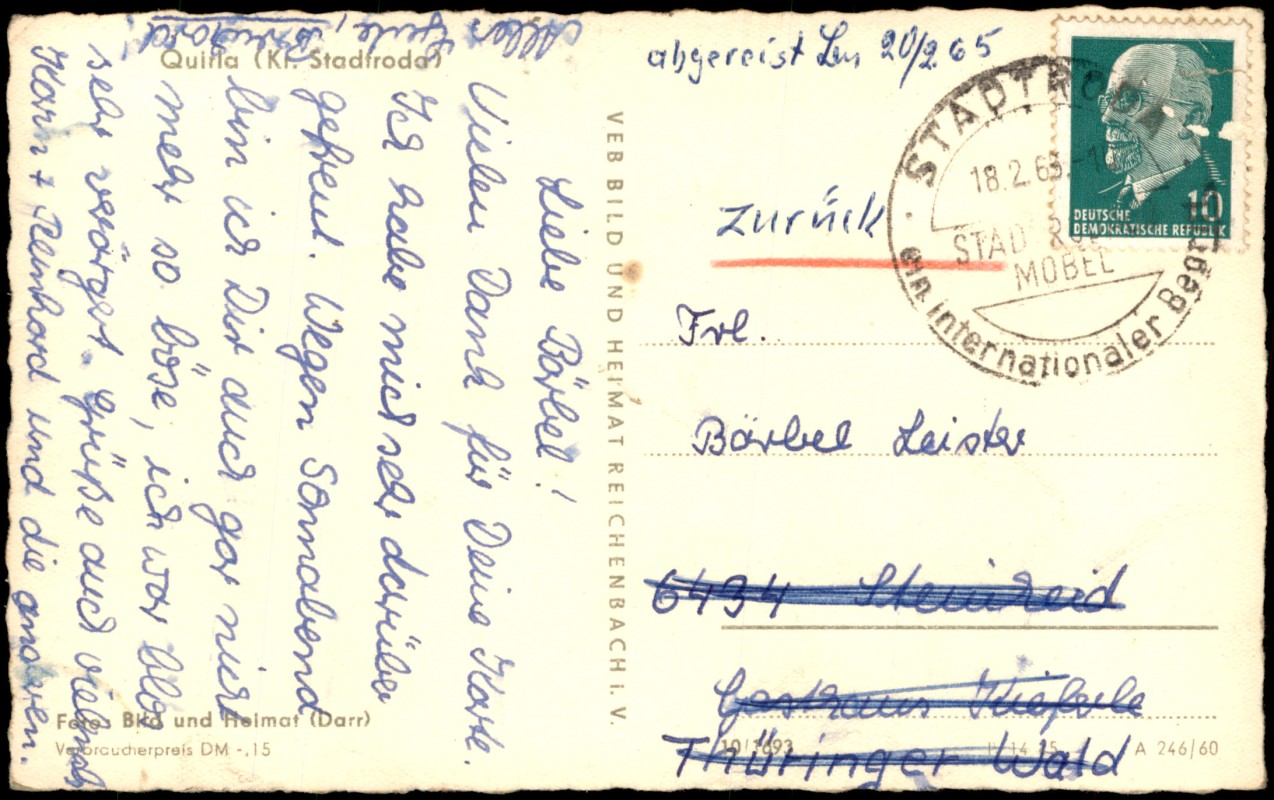 Quirla (Kr. Stadtroda)
Liebe Bärbel!
Vielen Dank für Deine Karte.
Ich habe mich sehr darüber
gefreut. Wegen Sonnabend
bin ich Dir auch gar nicht
mehr so böse, ich war blos
sehr verärget. Grüße auch vielmals
Karin + Reinhard und die anderen.
Alles
Gute,
Irmgard
Foto: Bild und Heimat (Darr)
Verbraucherpreis DM -,15
VEB BILD UND HEIMAT REICHENBACH i. V.
abgereist 20/2 65
Zurück
STADTRODA
18.2.65
STADTRODAER
MÖBEL
ein internationaler Begr
10
DEUTSCHE
DEMOKRATISCHE REPUBLIK
Frl.
Bärbel Leister
6434 Steinheid
Gasthaus Kieferle
Thüringer Wald
10/1693
A 246/60